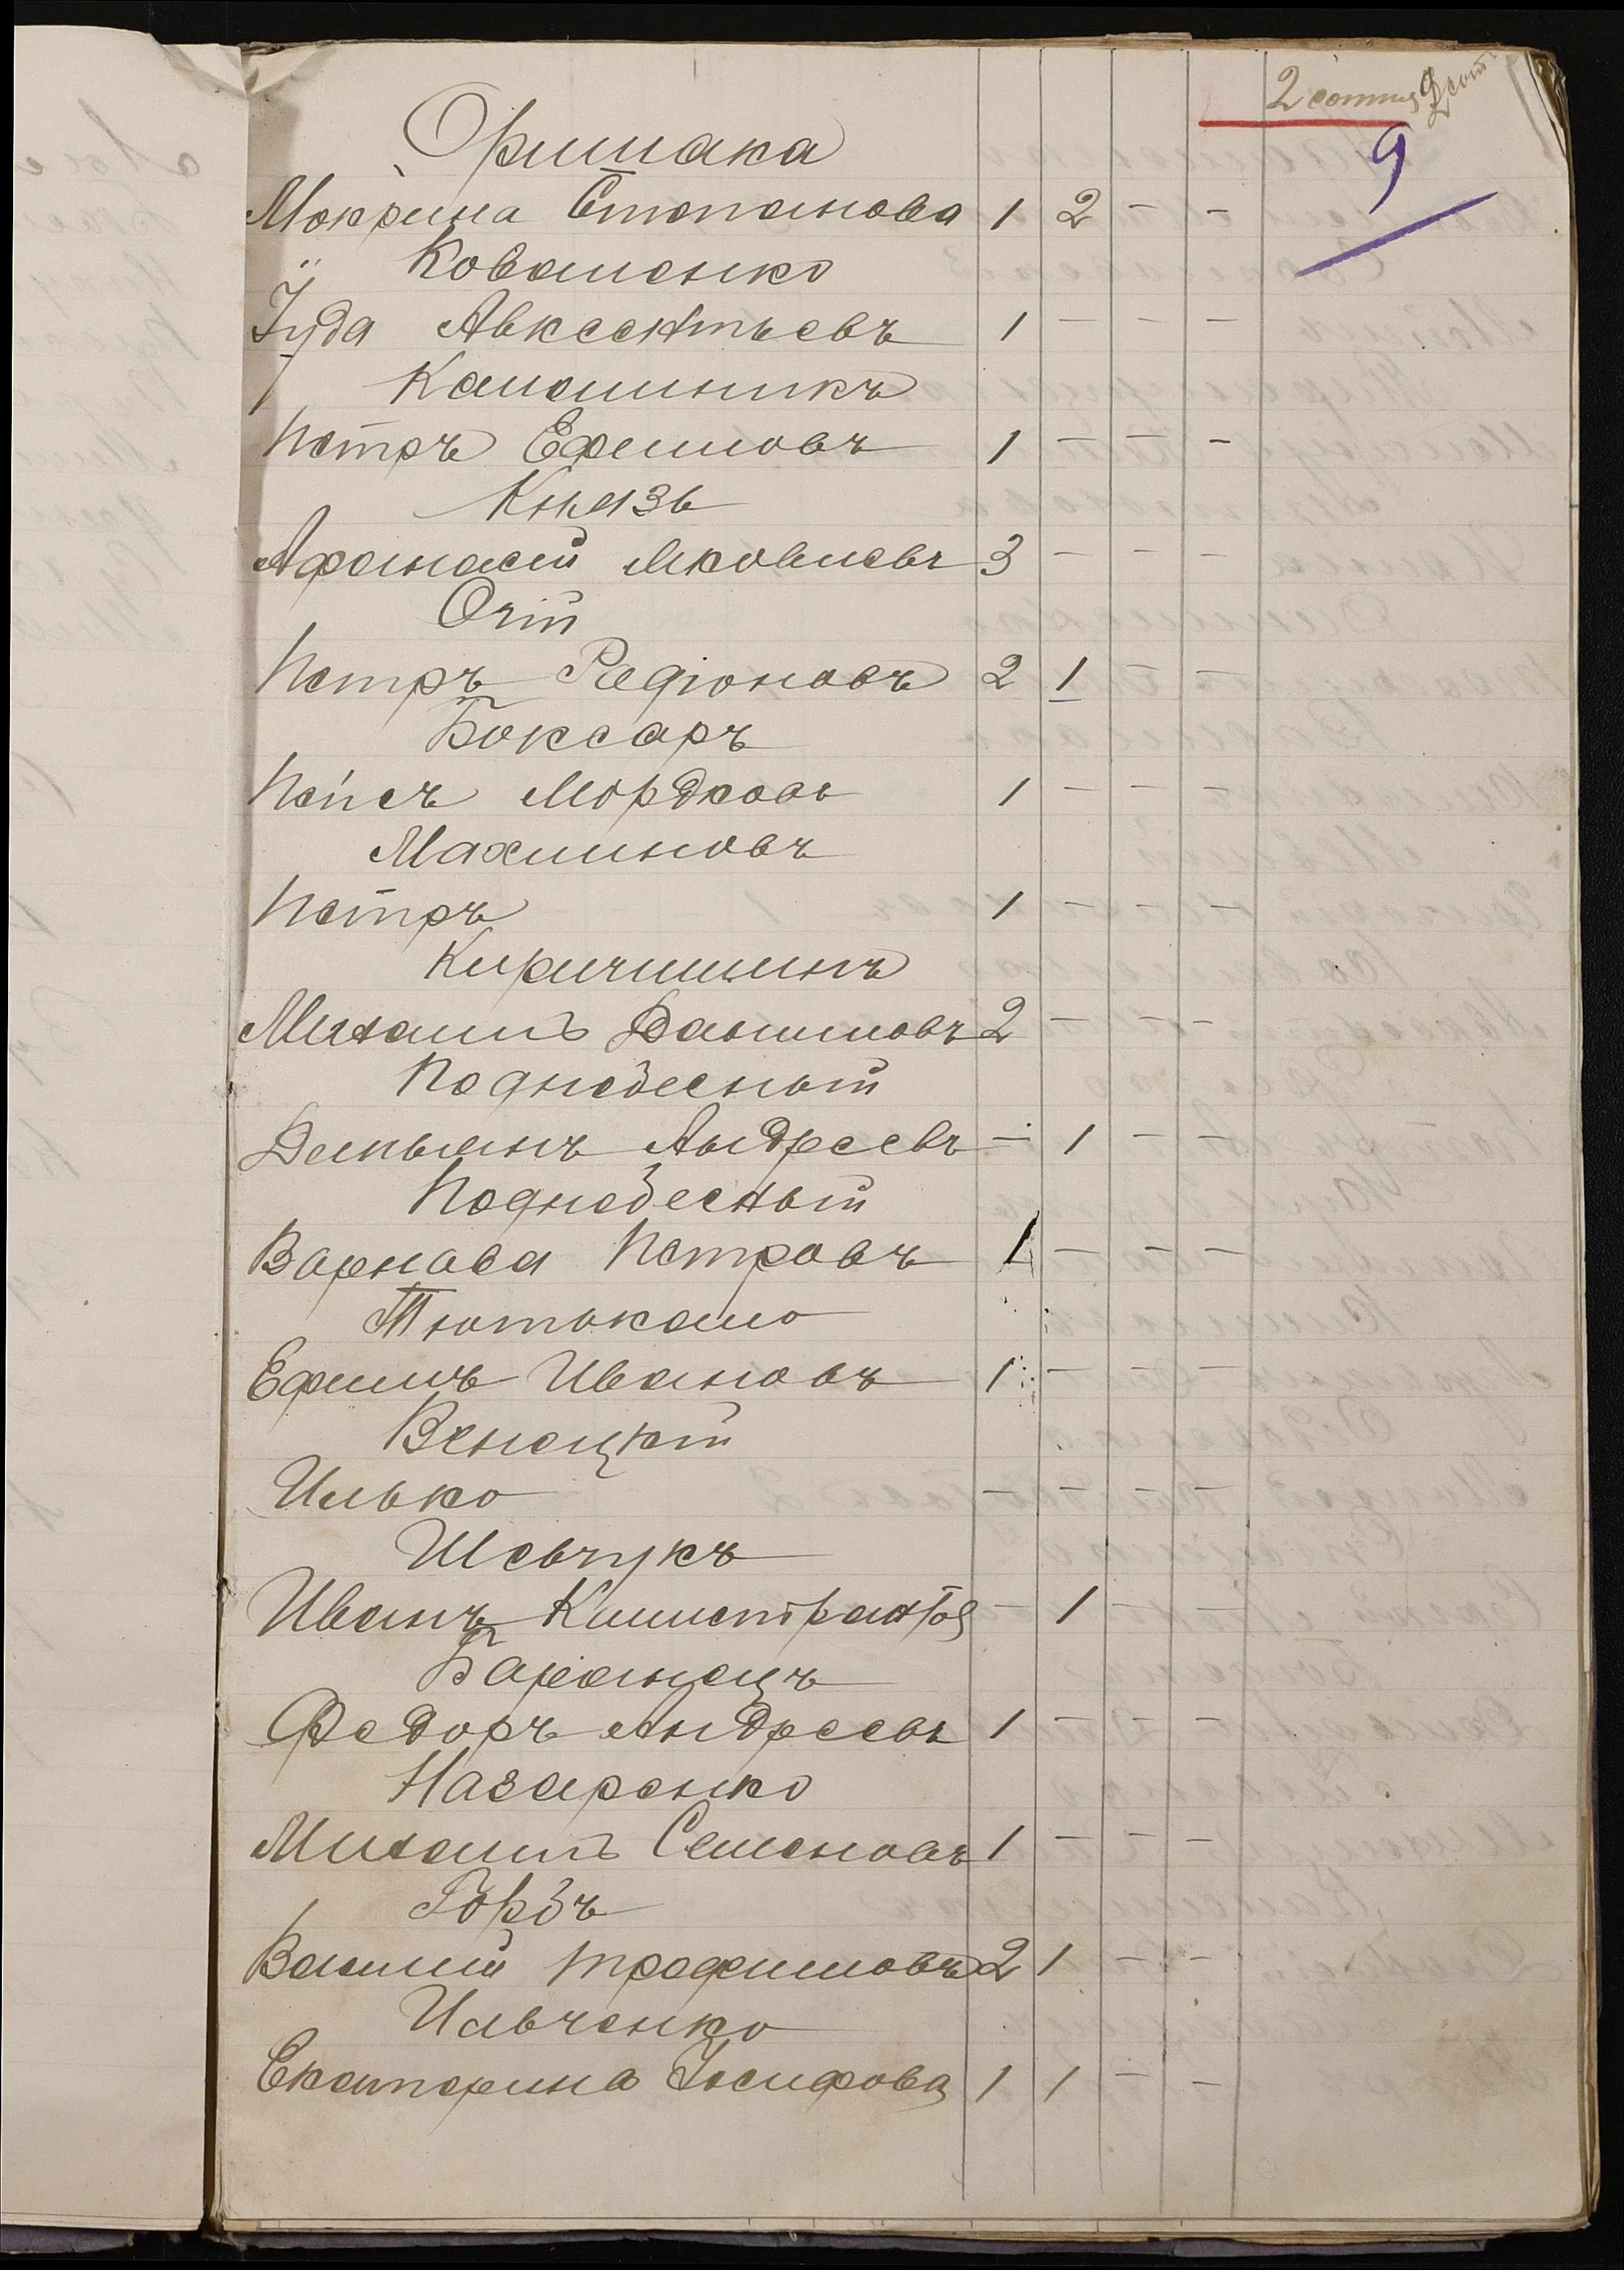 2 сотни 2 сот
9
Оришака
Мокрина Степанова 1 2 – –
Коваленко
Іуда Авксентьевъ 1 – – –
Калашникъ
Петръ Ефимовъ 1 – – –
Князь
Афанасій Яковлевъ 3 – – –
Петръ Радіоновъ 2 1 – –
Боксаръ
Мордковъ 1 – – –
Махлиновъ
Петръ 1 – – –
Михаилъ Даниловъ 2 – – –
Поднебесный
Демьянъ Андреевъ – 1 – –
Поднебесный
Варнава Петровъ 1 – – –
Тютькало
Ефимъ Ивановъ 1 – – –
Венецкій
Илько – – – –
Шевчукъ
Иванъ – 1 – –
Баранецъ
Федоръ Андреевъ 1 – – –
Назаренко
Михаилъ Семеновъ 1 – – –
Горбъ
Василій Трофимовъ 2 1 – –
Ильченко
Екатерина Іосифова 1 1 – –